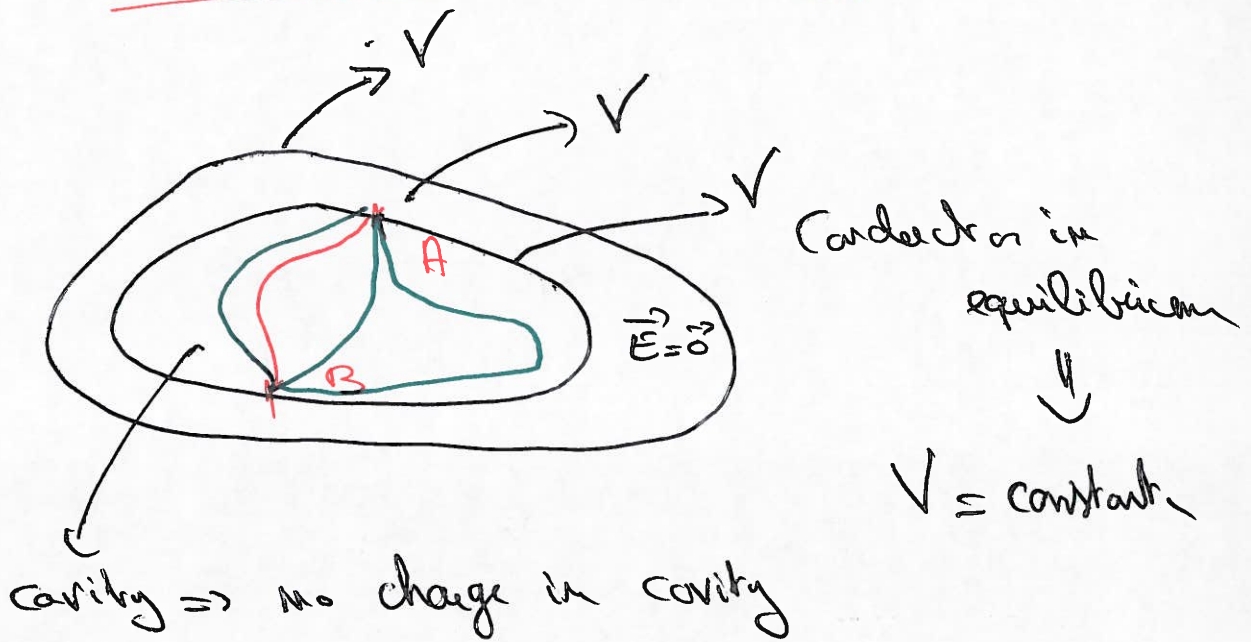 V
V
V
A
B
E⃗=0⃗
Conductor in
equilibrium
⇓
V = constant
cavity => no charge in cavity